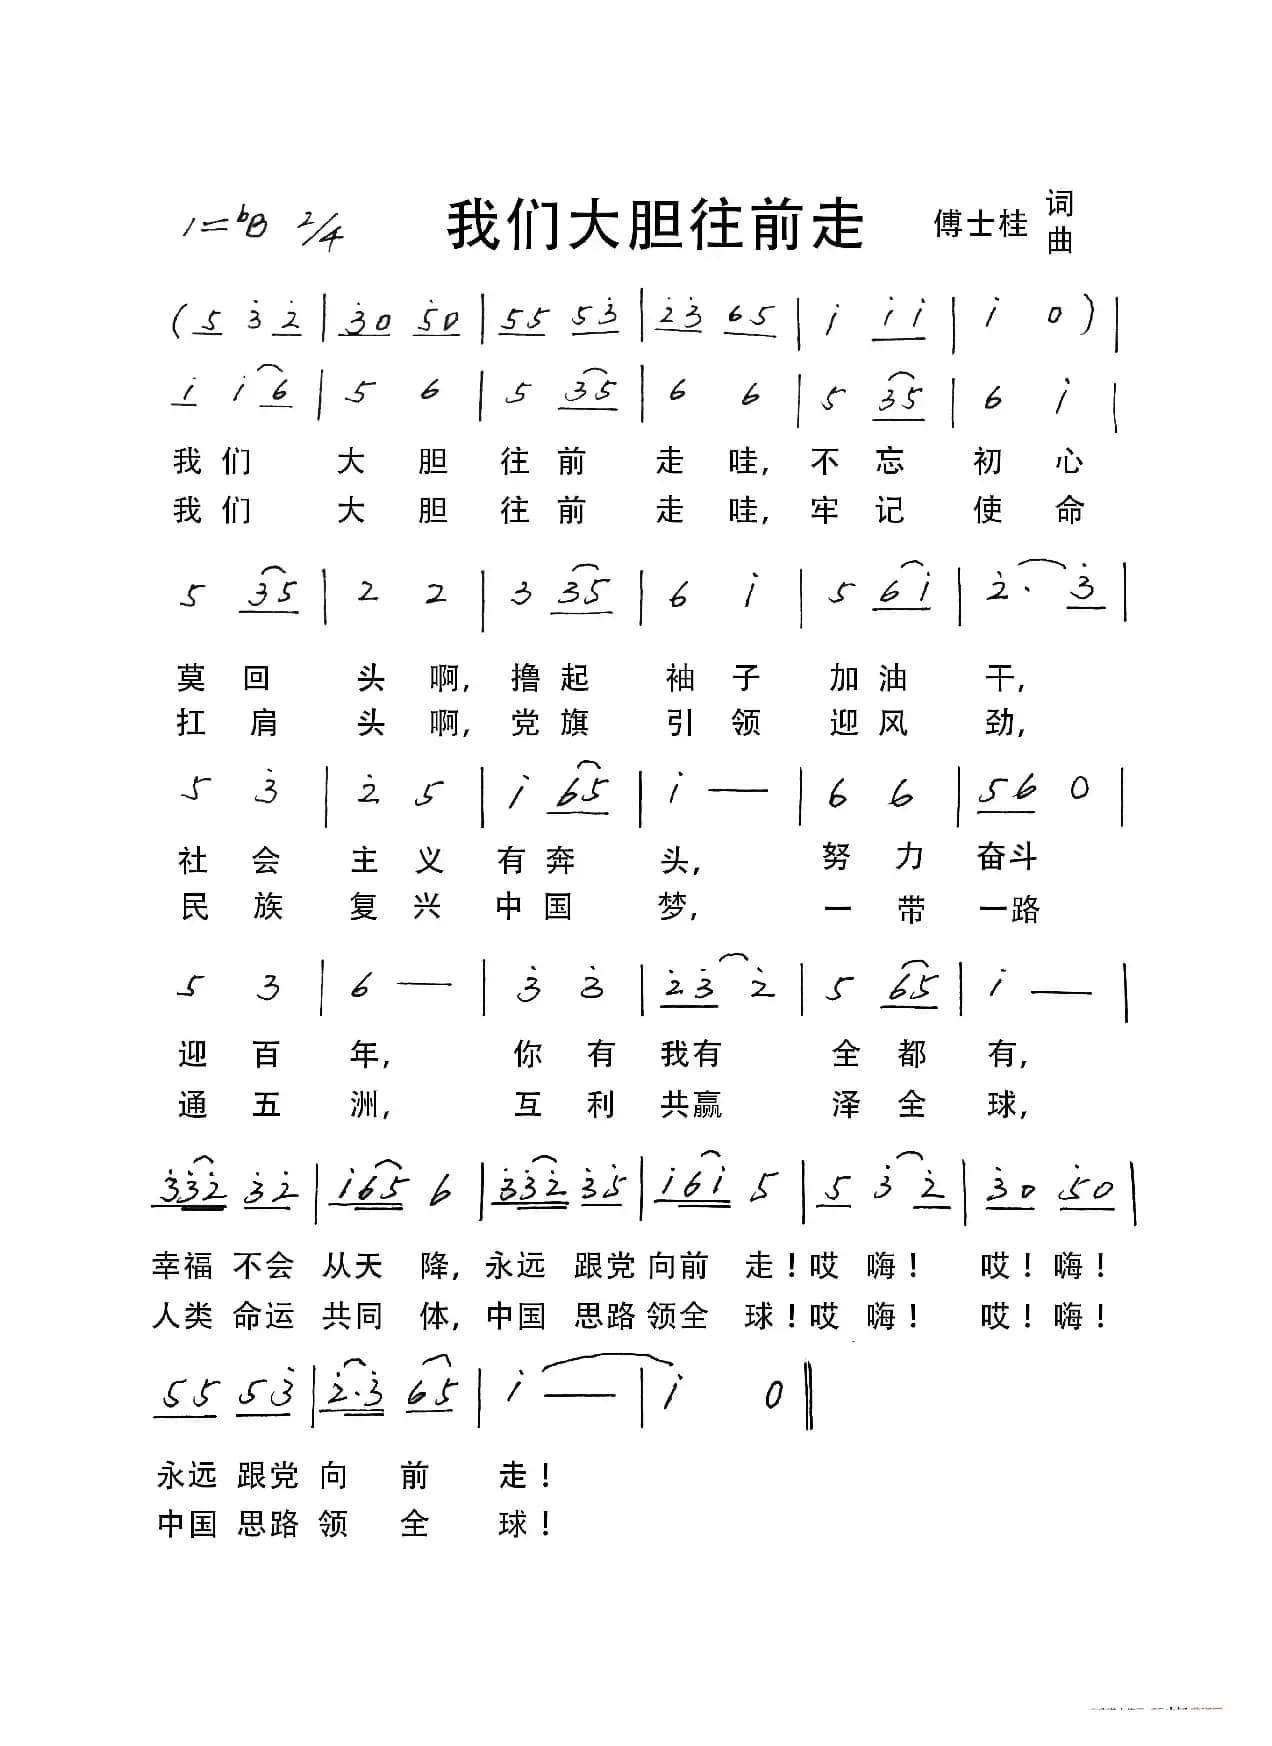 1=ᵇB 2/4 我们大胆往前走 傅士桂 词
曲
(5 3̇ 2̇ | 3̇0 5̇0 | 55 53̇ | 2̇3̇ 65 | 1̇ 1̇1̇ | 1̇ 0 ) |
1̇ 1̇6 | 5 6 | 5 35 | 6 6 | 5 35 | 6 1̇ |
我们 大 胆 往 前 走 哇, 不 忘 初 心
我们 大 胆 往 前 走 哇, 牢 记 使 命
5 35 | 2 2 | 3 35 | 6 1̇ | 5 61̇ | 2̇· 3̇ |
莫 回 头 啊, 撸 起 袖 子 加 油 干,
扛 肩 头 啊, 党 旗 引 领 迎 风 劲,
5 3̇ | 2̇ 5 | 1̇ 65 | 1̇ — | 6 6 | 56 0 |
社 会 主 义 有 奔 头, 努 力 奋斗
民 族 复 兴 中 国 梦, 一 带 一路
5 3 | 6 — | 3̇ 3̇ | 2̇3̇ 2̇ | 5 65 | 1̇ — |
迎 百 年, 你 有 我有 全 都 有,
通 五 洲, 互 利 共赢 泽 全 球,
3̇3̇2̇ 3̇2̇ | 1̇65 6 | 3̇3̇2̇ 3̇5̇ | 1̇61̇ 5 | 5 3̇ 2̇ | 3̇0 5̇0 |
幸福 不会 从天 降, 永远 跟党 向前 走! 哎 嗨! 哎! 嗨!
人类 命运 共同 体, 中国 思路 领全 球! 哎 嗨! 哎! 嗨!
55 53̇ | 2̇·3̇ 65 | 1̇ — | 1̇ 0 ‖
永远 跟党 向 前 走!
中国 思路 领 全 球!